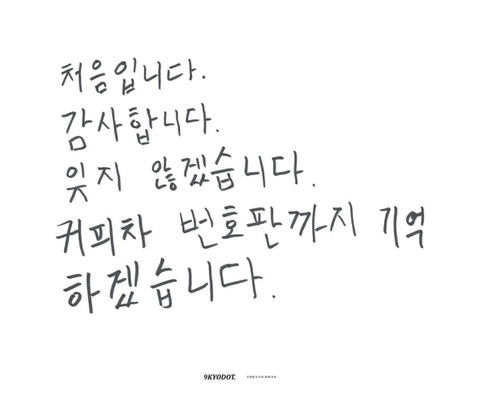 처음입니다.
감사합니다.
잊지 않겠습니다.
커피차 번호판까지 기억
하겠습니다.
9KYODOT.